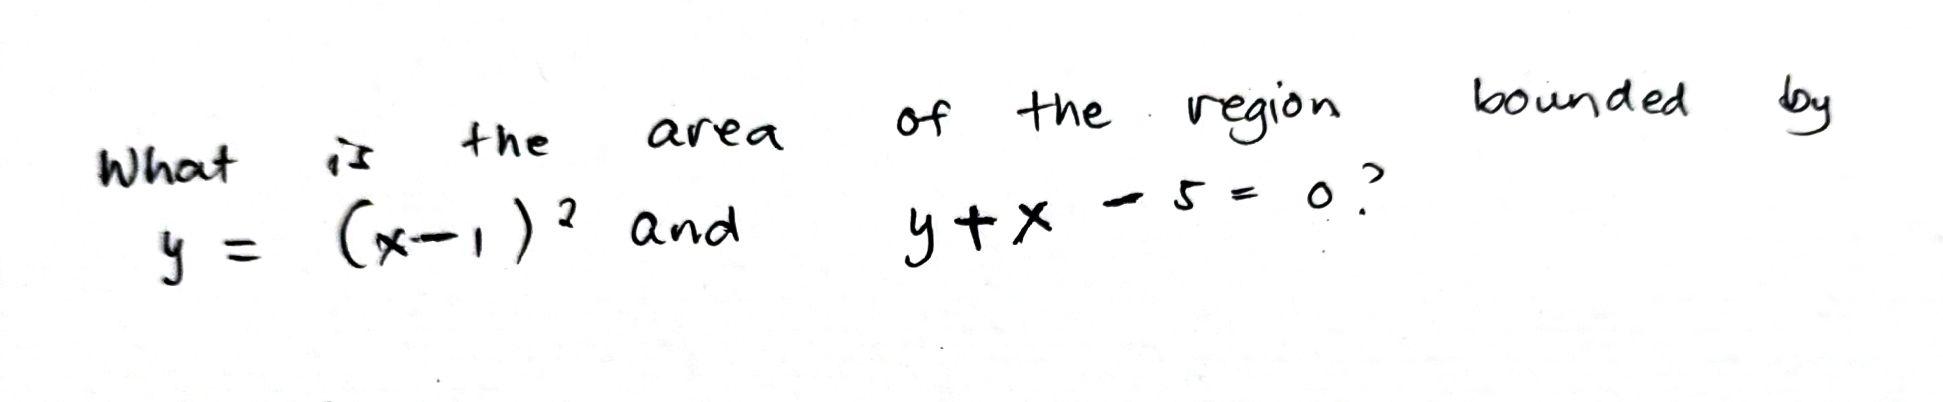 What is the area of the region bounded by
y = (x-1)² and y+x - 5 = 0?